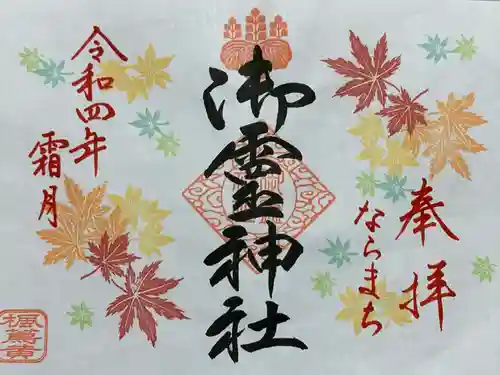 奉拝
ならまち
御霊神社
令和四年
霜月